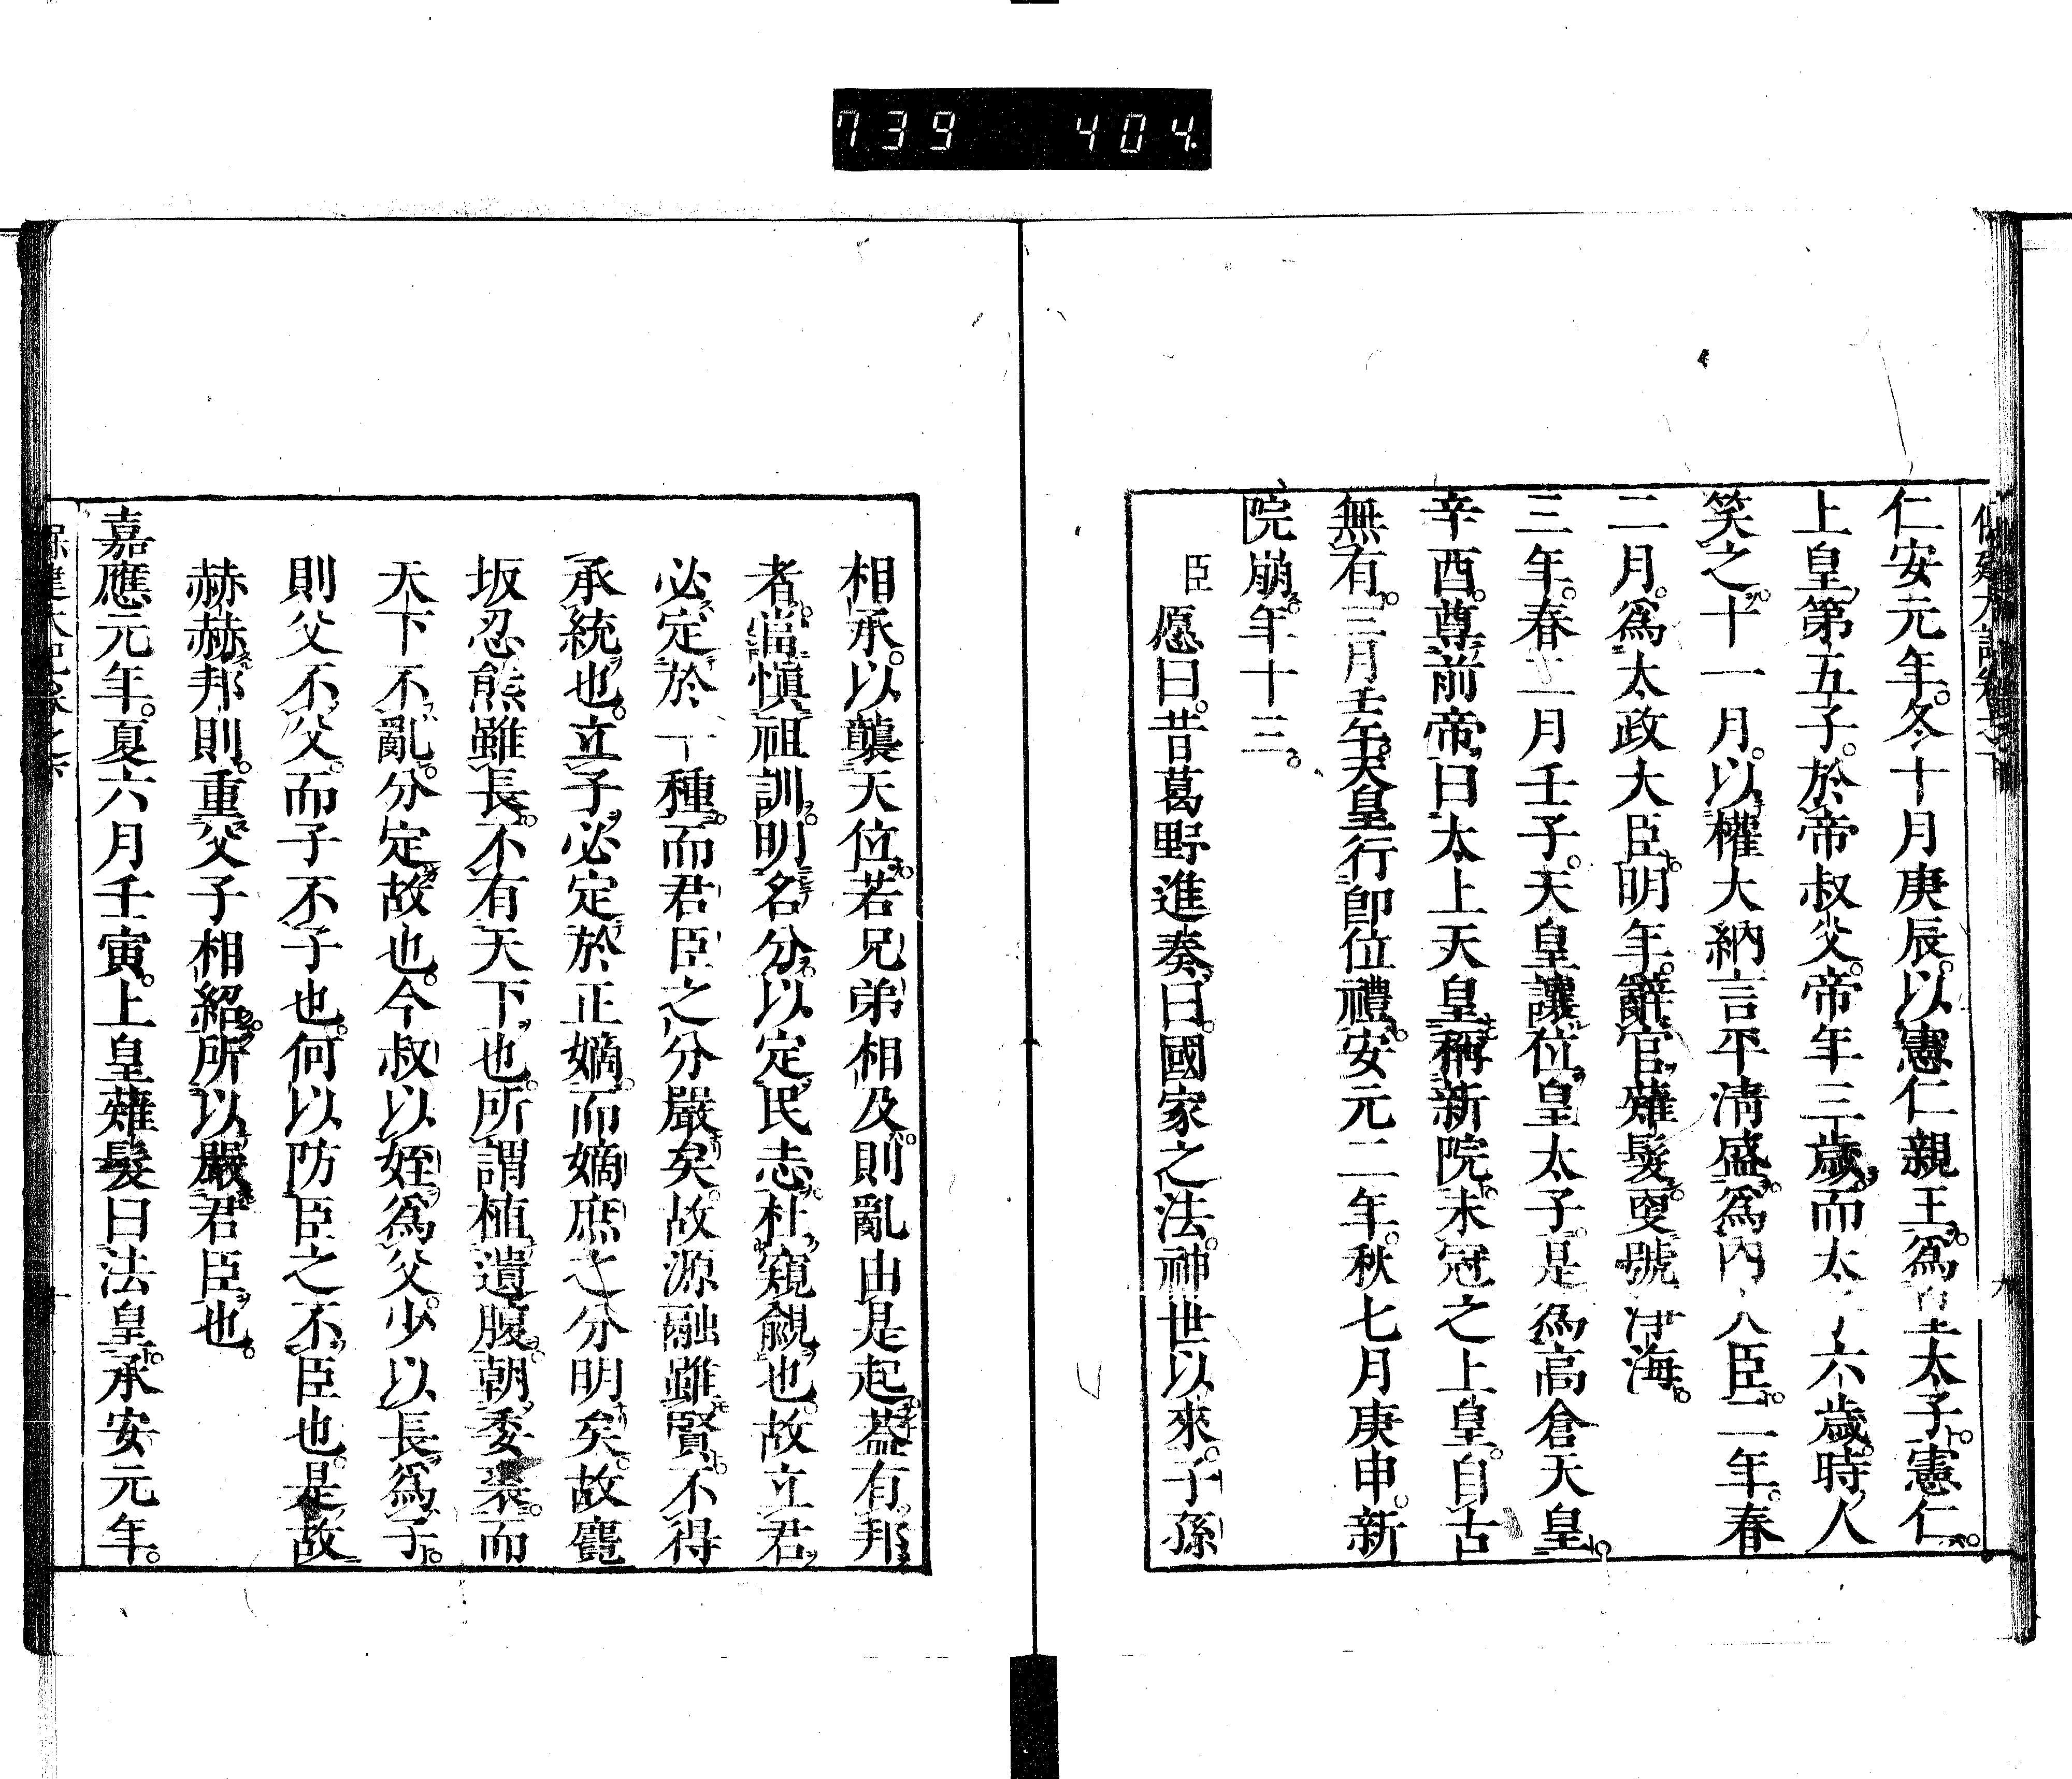 739 404
仁安元年。冬十月庚辰。以憲仁親王爲皇太子。憲仁
上皇第五子。於帝叔父。帝年三歲。而太子六歲。時人
笑之。十一月。以權大納言平淸盛爲內大臣。二年。春
二月。爲太政大臣。明年。辭官薙髮。更號淨海。
三年。春二月壬子。天皇讓位皇太子。是爲高倉天皇。
辛酉。尊前帝曰太上天皇。稱新院。未冠之上皇。自古
無有。三月壬午。天皇行卽位禮。安元二年。秋七月庚申。新
院崩。年十三。
臣愿曰。昔葛野進奏曰。國家之法。神世以來。子孫
相承。以襲天位。若兄弟相及。則亂由是起。葢有邦
者。當愼祖訓。明名分。以定民志。杜窺覦也。故立君
必定於一種。而君臣之分嚴矣。故源融雖賢。不得
承統也。立子必定於正嫡。而嫡庶之分明矣。故麛
坂忍熊雖長。不有天下也。所謂植遺腹。朝委裘。而
天下不亂。分定故也。今叔以姪爲父。少以長爲子。
則父不父。而子不子也。何以防臣之不臣也。是故
赫赫邦則。重父子相紹。所以嚴君臣也。
嘉應元年。夏六月壬寅。上皇薙髮曰法皇。承安元年。